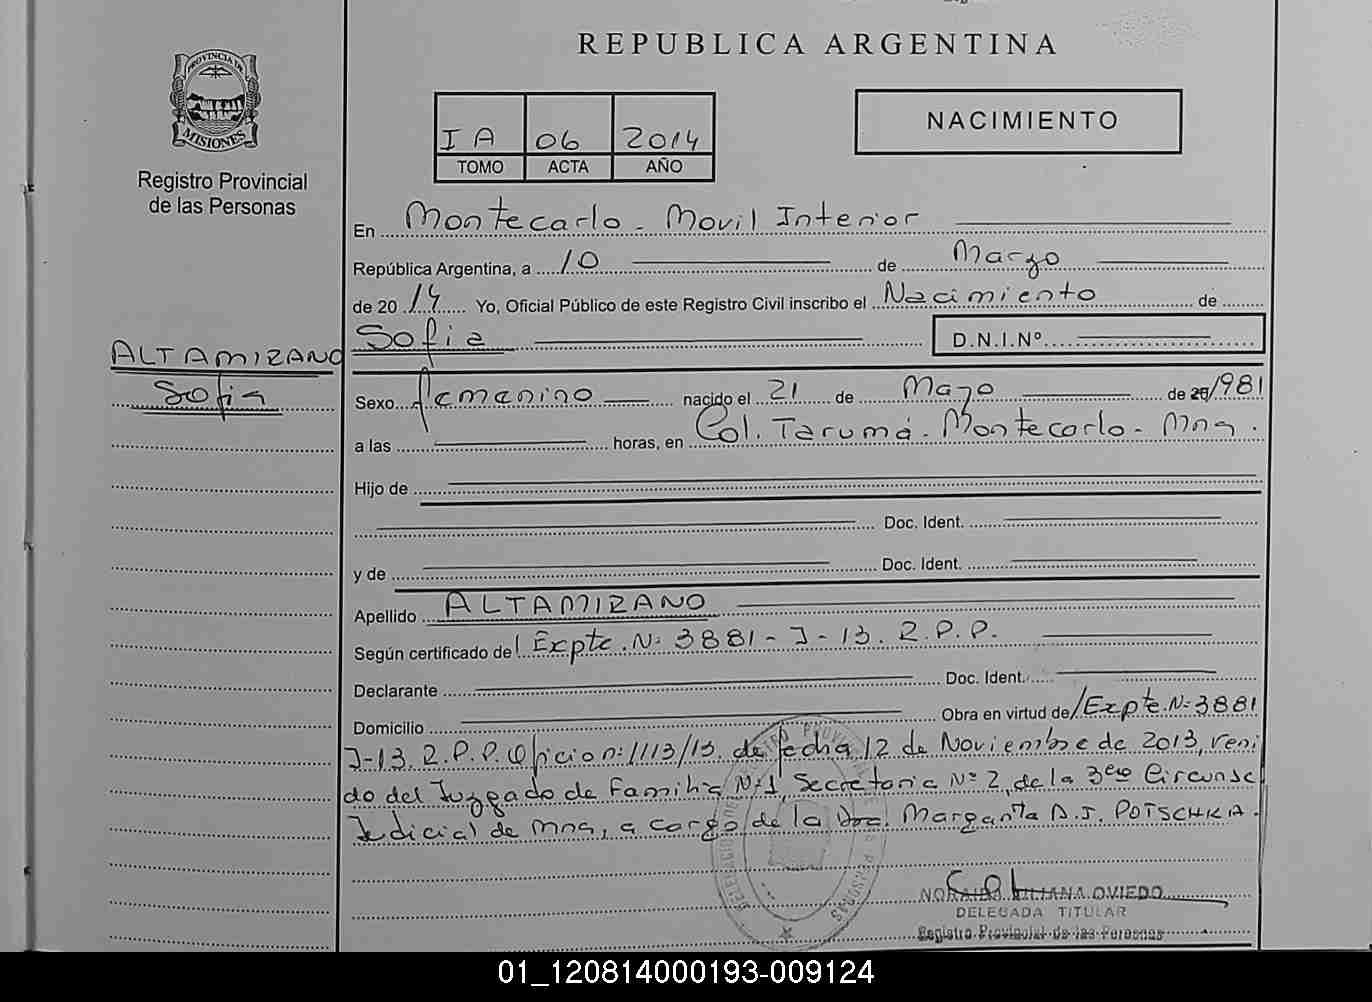 REPUBLICA ARGENTINA
PROVINCIA DE
MISIONES
Registro Provincial
de las Personas
I A 06 2014
TOMO ACTA AÑO
NACIMIENTO
En Montecarlo - Movil Interior
República Argentina, a 10 de Marzo
de 20 14 Yo, Oficial Público de este Registro Civil inscribo el Nacimiento de
Sofia D.N.I.Nº
ALTAMIRANO
Sofia
Sexo femenino nacido el 21 de Mayo de 20/981
a las horas, en Col. Tarumá - Montecarlo - Mns.
Hijo de
Doc. Ident.
y de Doc. Ident.
Apellido ALTAMIRANO
Según certificado del Expte. Nº 3881-J-13. R.P.P.
Declarante Doc. Ident.
Domicilio Obra en virtud de/Expte. Nº 3881
J-13. R.P.P. Oficio nº 1113/13, de fecha 12 de Noviembre de 2013, reni
do del Juzgado de Familia Nº 1, Secretaria Nº 2, de la 3era Circunsc
Judicial de Mns, a cargo de la Dra. Margarita D.J. POTSCHKA.
NORAIDA LILIANA OVIEDO
DELEGADA TITULAR
Registro Provincial de las Personas
01_120814000193-009124